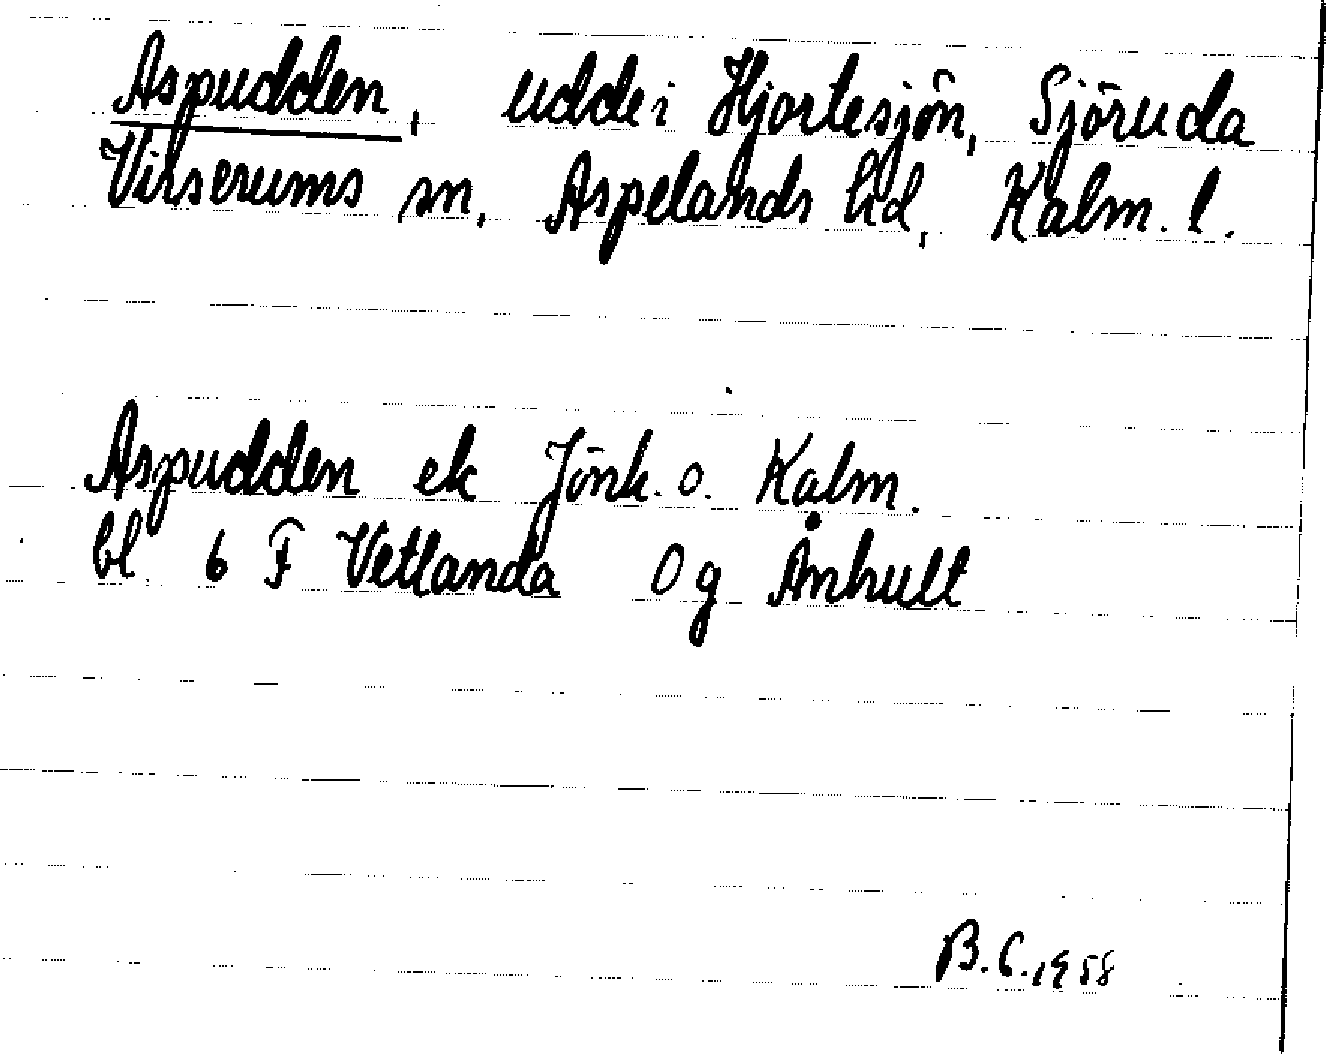 Aspudden, udde i Hjortesjön, Sjöruda
Virserums sn, Aspelands hd, Kalm. l.
Aspudden ek Jönk. o. Kalm.
bl. 6 F Vetlanda 0 g Änhult
B.C. 1958